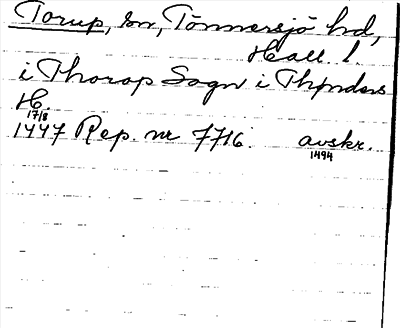 Torup, sn, Tönnersjö hd,
Hall. l.
i Thorop Sogn i Thønders
H.
17/8
1447 Rep. nr 7716. avskr.
1494